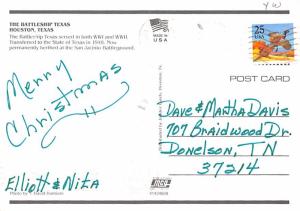 YW
THE BATTLESHIP TEXAS
HOUSTON, TEXAS
The Battleship Texas served in both WWI and WWII.
Transferred to the State of Texas in 1948. Now
permanently berthed at the San Jacinto Battleground.
MADE IN
USA
25
USA
POST CARD
Merry
Christmas
Dave & Martha Davis
707 Braidwood Dr.
Donelson, TN
37214
Elliott & Nita
Photo by